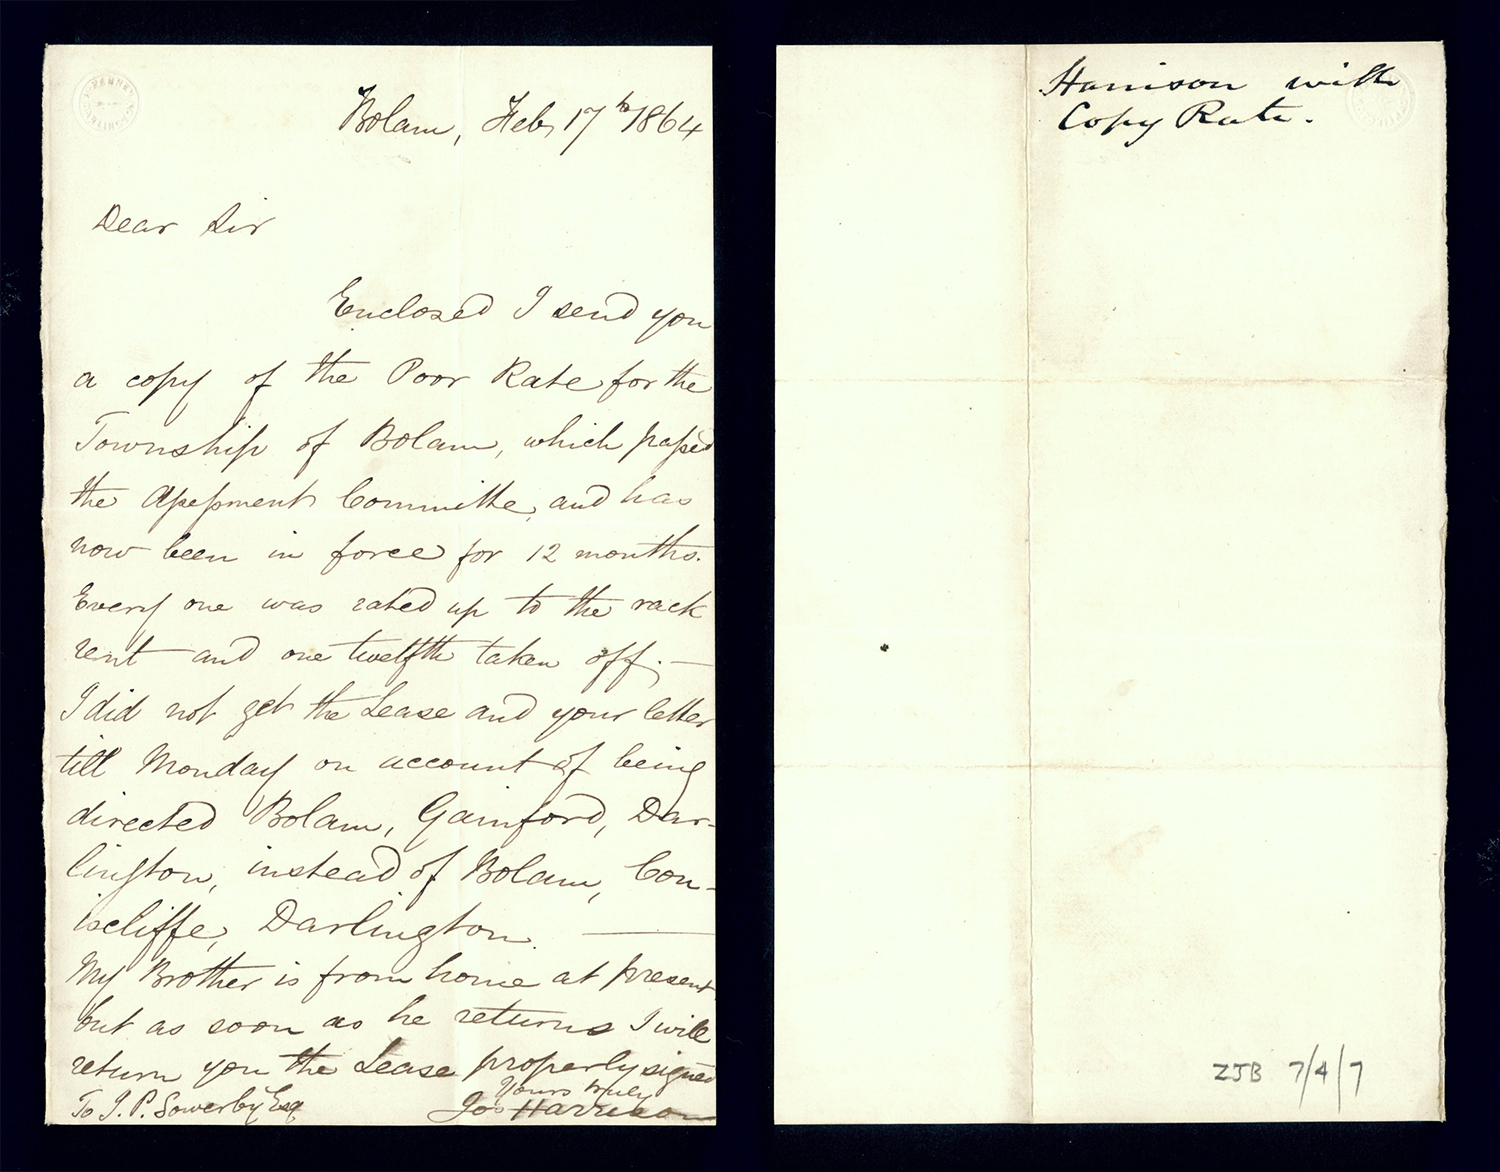 Bolam, Feby 17th 1864
Dear Sir
Enclosed I send you
a copy of the Poor Rate for the
Township of Bolam, which passed
the Assessment Committee, and has
now been in force for 12 months.
Every one was rated up to the rack
rent and one twelfth taken off. —
I did not get the Lease and your letter
till Monday on account of being
directed Bolam, Gainford, Dar-
lington, instead of Bolam, Con-
iscliffe, Darlington. —
My Brother is from home at present
but as soon as he returns I will
return you the Lease properly signed
Yours truly
To J. P. Sowerby Esq
Jos Harrison
Harrison with
Copy Rate.
ZJB 7/4/7